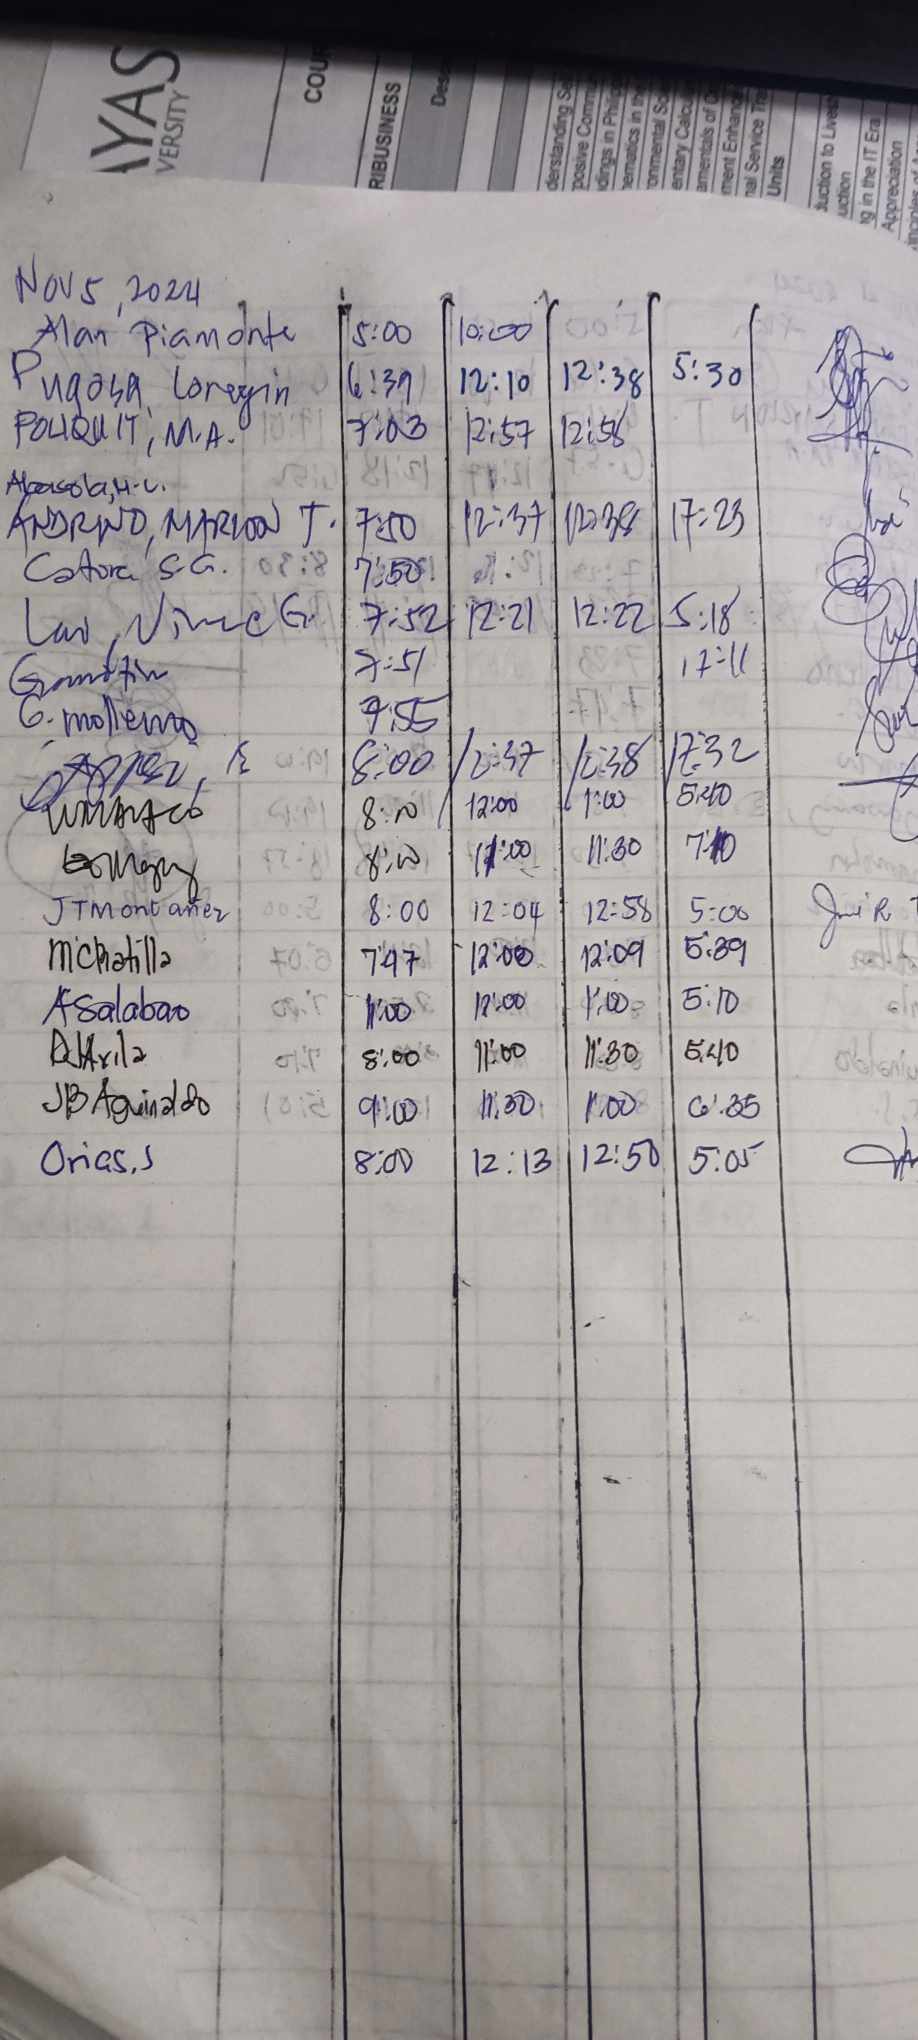 YAS
VERSITY
COU
RIBUSINESS
Des
derstanding Se
posive Commu
dings in Philipp
ematics in the
onmental Sc
entary Calcu
amentals of
ment Enhanc
nal Service Tra
Units
duction to Lives
uction
g in the IT Era
Appreciation
Nov 5, 2024
Alan Piamonte 5:00 10:00
Pugosa, Loregin 6:39 12:10 12:38 5:30
POLIQUIT, M.A. 7:03 12:57 12:58
Abasola, H.L.
ANDRINO, MARLON T. 7:50 12:37 12:38 17:23
Catora S.G. 7:50
Lao, G. 7:52 12:21 12:22 5:18
7:51 17:11
G. mollemo 7:55
8:00 12:37 12:38 17:32
8:00 12:00 1:00 5:40
8:00 11:00 11:30 7:10
JTMontañez 8:00 12:04 12:58 5:00
MCPhatilla 7:47 12:00 12:09 5:39
ASalabao 11:00 12:00 1:00 5:10
DAvila 8:00 11:00 11:30 5:40
JB Aguinaldo 9:00 11:30 1:00 6:35
Orias, J 8:00 12:13 12:50 5:05